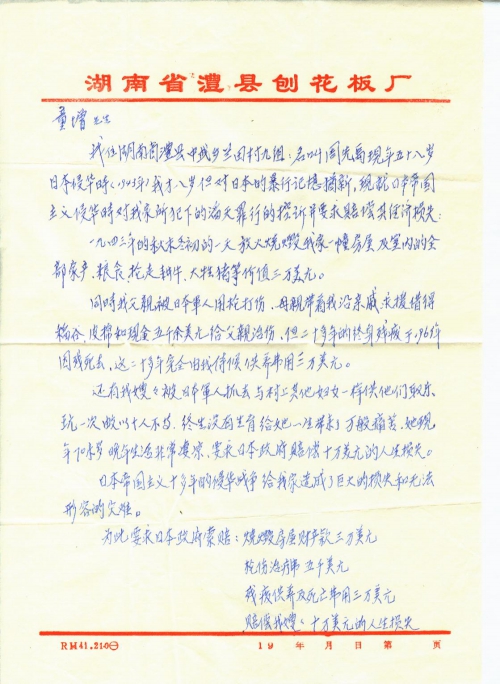 湖南省澧县刨花板厂
童增先生
我住湖南省澧县中武乡兰田村九组：名叫周先禹现年五十八岁
日本侵华时(1943年)我才八岁但对日本的暴行记忆犹新，现就日本帝国
主义侵华时对我家所犯下的滔天罪行的控诉并要求赔偿其经济损失：
一九四三年的秋末冬初的一天放火烧毁我家一幢房屋及室内的全
部家产、粮食、抢走耕牛、大牲猪等价值三万美元。
同时我父亲被日本军人用枪打伤，母亲带着我沿亲戚求援借得
稻谷、皮棉和现金五千余美元给父亲治伤，但二十多年的终身残废于1965年
因残死去，这二十多年完全由我侍候供养费用三万美元。
还有我嫂々被日本军人抓去与村上其他妇女一样供他们取乐，
玩一次做以十人不等，终生没有生育给她一生带来了万般痛苦，她现
年70多岁晚年生活非常凄凉、要求日本政府赔偿十万美元的人生损失。
日本帝国主义十多年的侵华战争给我家造成了巨大的损失和无法
形容的灾难。
为此要求日本政府索赔：烧毁房屋财产款三万美元
抢伤治疗费 五千美元
残废供养及死亡费用三万美元
赔偿我嫂々十万美元的人生损失
RM41.210 19 年 月 日 第 页